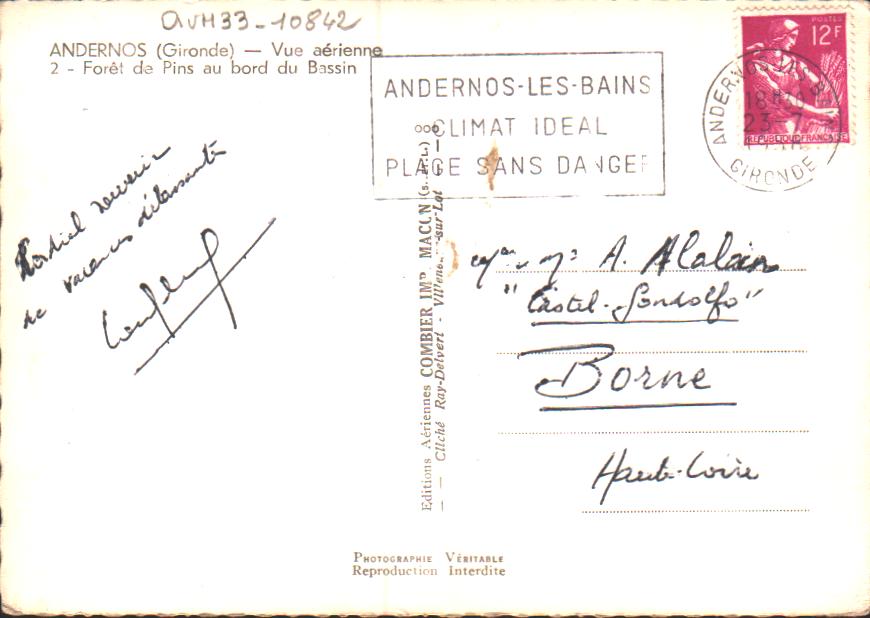 QVM33-10842
ANDERNOS (Gironde) — Vue aérienne
2 - Forêt de Pins au bord du Bassin
ANDERNOS-LES-BAINS
CLIMAT IDEAL
PLAGE SANS DANGER
POSTES
12F
REPUBLIQUE FRANÇAISE
ANDERNOS-LES-B
18H
23-7
GIRONDE
Cordial souvenir
de vacances délassantes
Editions Aériennes COMBIER IMP. MACON
Cliché Ray-Delvert - Villeneuve-sur-Lot
A. Alalain
"Castel-Gondolfo"
Borne
Haute-Loire
PHOTOGRAPHIE VÉRITABLE
Reproduction Interdite